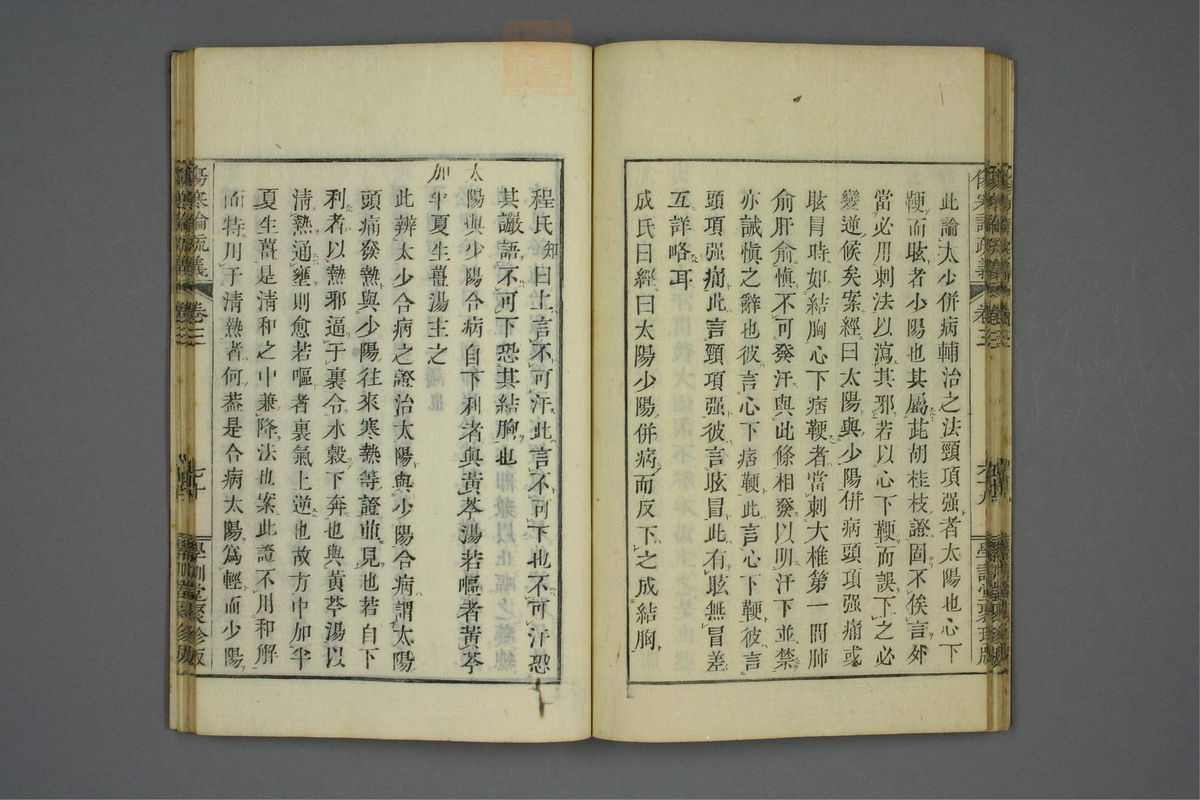 此論太少併病輔治之法頸項强者太陽也心下
鞕而眩者少陽也其屬茈胡桂枝證固不俟言外
當必用刺法以瀉其邪若以心下鞕而誤下之必
變逆候矣案經曰太陽與少陽併病頭項强痛或
眩冒時如結胸心下痞鞕者當刺大椎第一間肺
俞肝俞愼不可發汗與此條相發以明汗下並禁
亦誡愼之辭也彼言心下痞鞕此言心下鞕彼言
頭項强痛此言頸項强彼言眩冒此有眩無冒差
互詳略耳
成氏曰經曰太陽少陽併病而反下之成結胸
程氏知曰上言不可汗此言不可下也不可汗恐
其讝語不可下恐其結胸也
太陽與少陽合病自下利者與黃芩湯若嘔者黃芩
加半夏生薑湯主之
此辨太少合病之證治太陽與少陽合病謂太陽
頭痛發熱與少陽往來寒熱等證並見也若自下
利者以熱邪逼于裏令水穀下奔也與黃芩湯以
淸熱通壅則愈若嘔者裏氣上逆也故方中加半
夏生薑是淸和之中兼降法也案此證不用和解
而特用于淸熱者何葢是合病太陽爲輕而少陽
傷寒論疏義
卷三
七十
學訓堂聚珍版